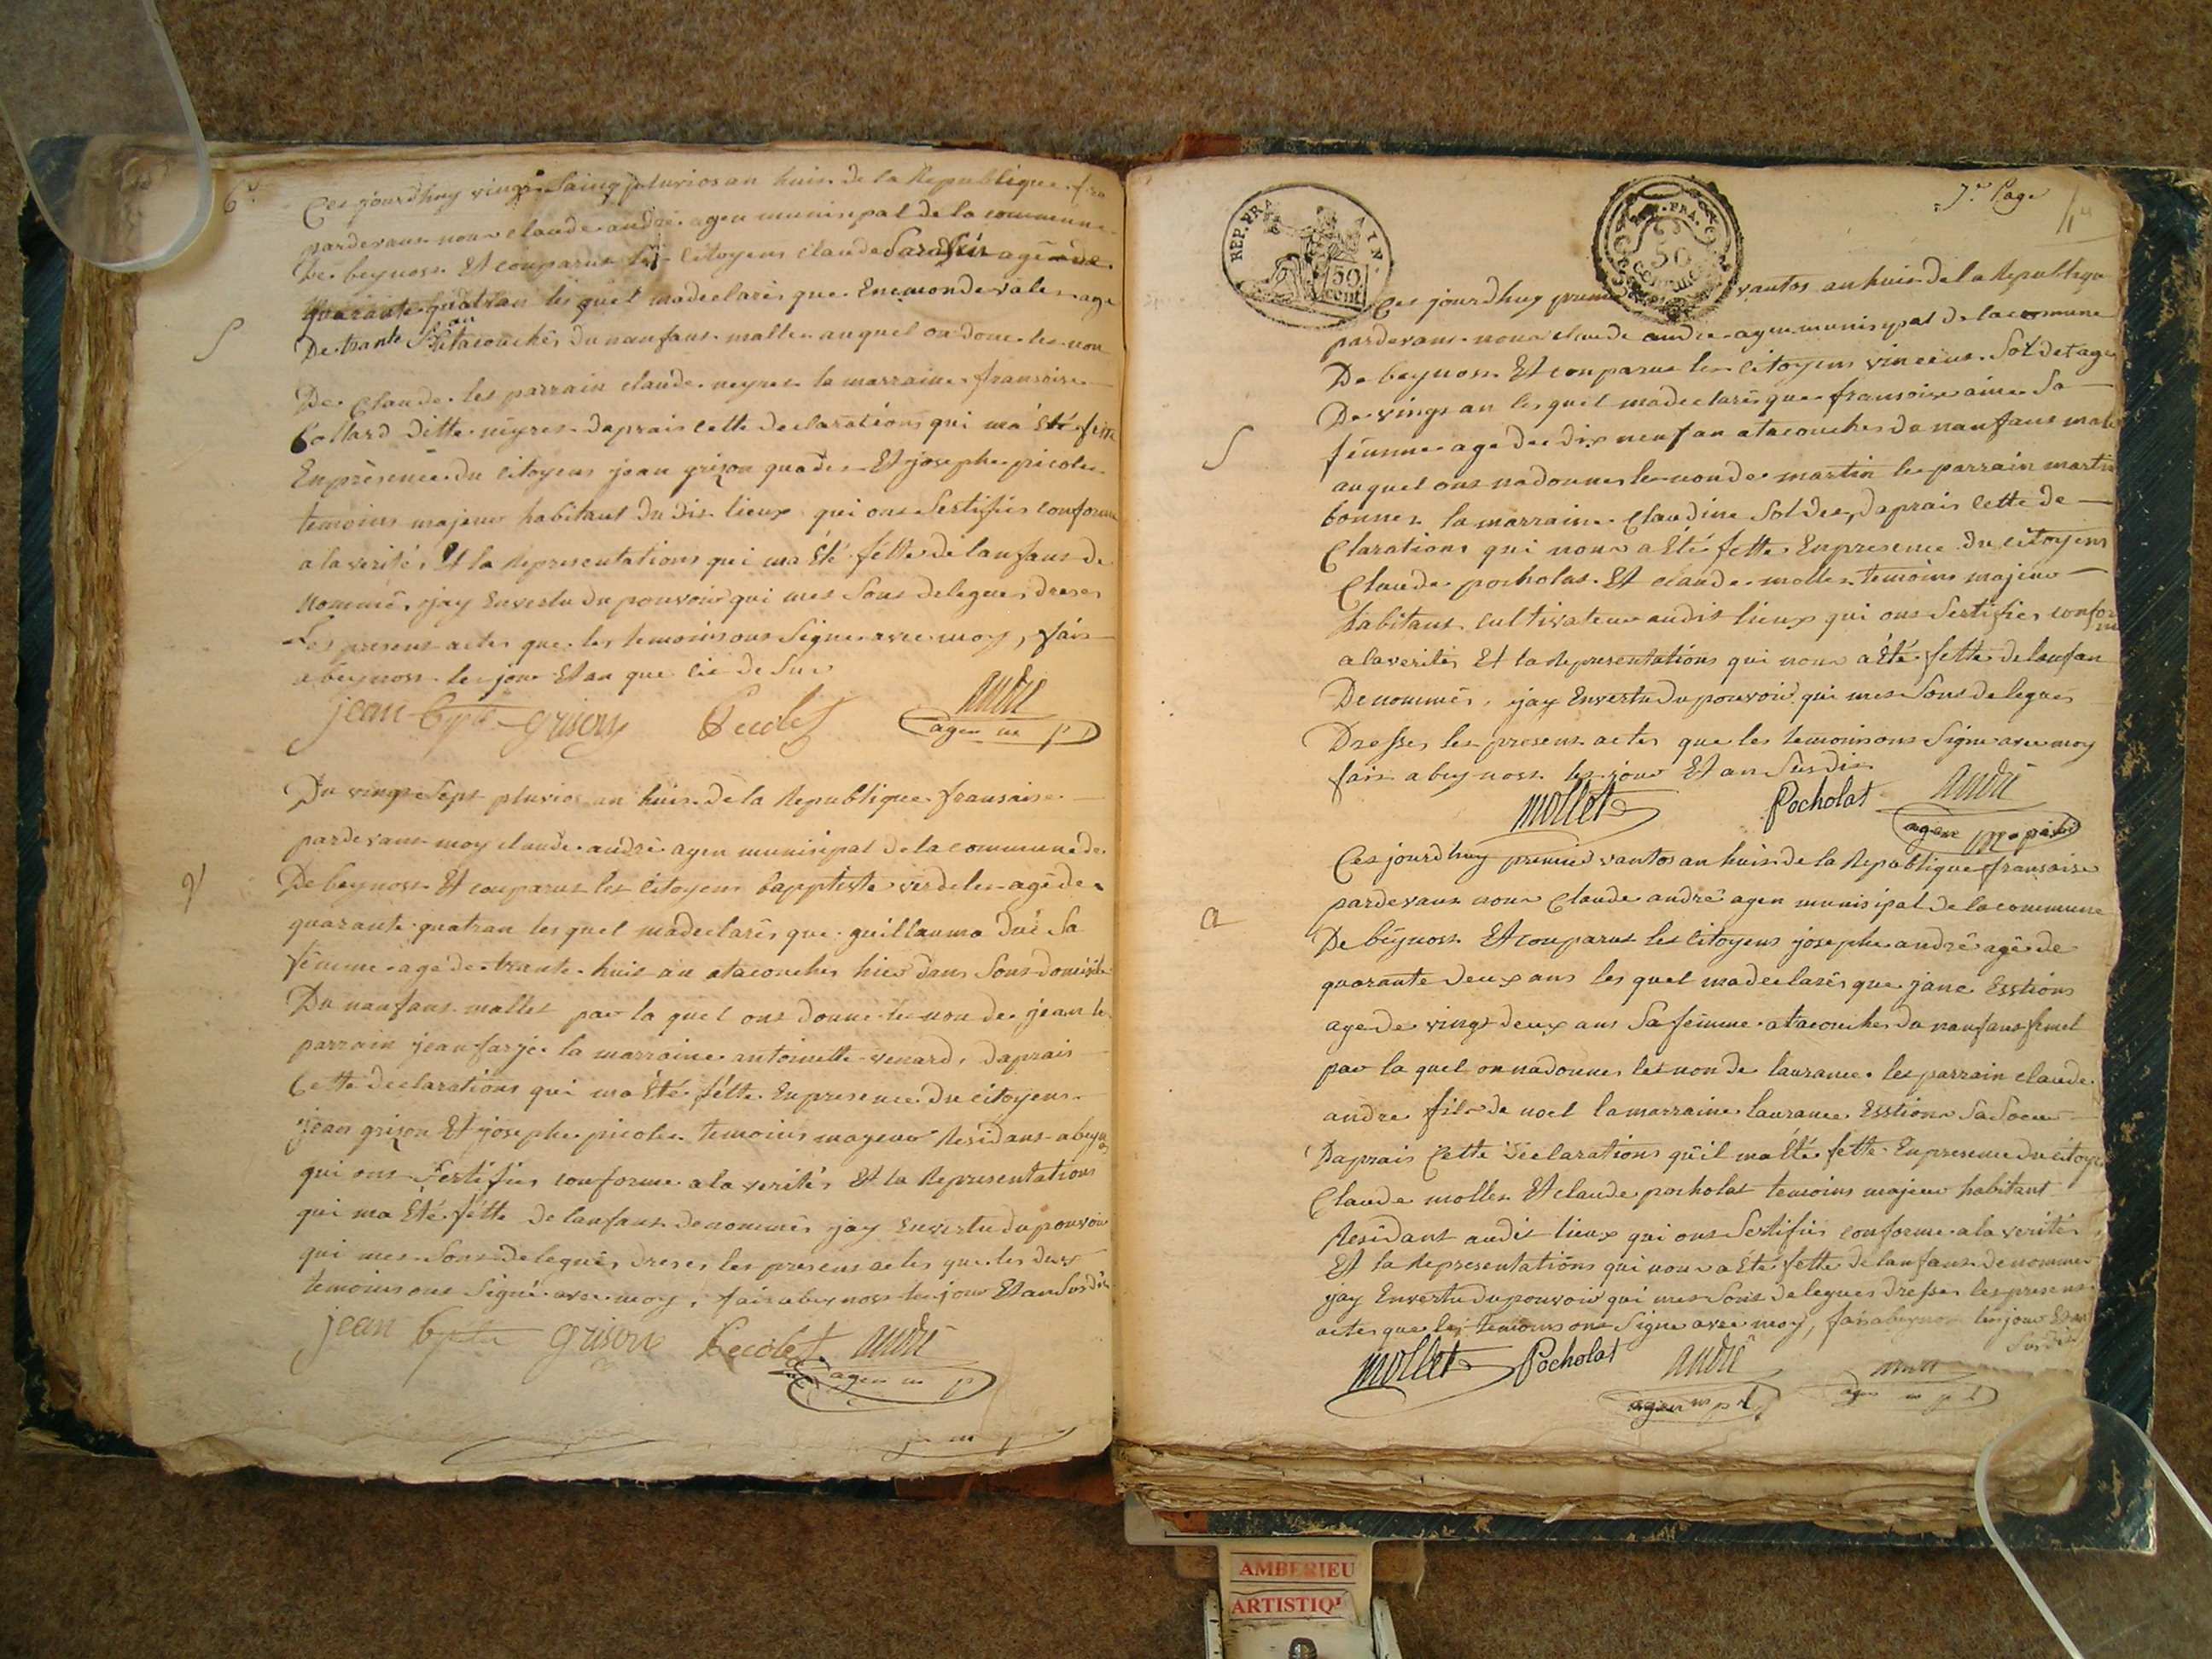 6e
Ces jourdhuy vingt Sainq pluvios an huit de la Republique fra
pardevant nous claude andré agen munisipal de la commune
De beynost Et conparut les Citoyens claude Sarasin agé de
quarante quatran les quel madeclarés que Enemonde vale agé
De trante S an Et acouchés du nanfans malle auquel on donc les non
De Claude les parrain claude neyret la marraine fransoise
Collard ditte neyret daprais cette declarations qui ma Eté fette
En présence du Citoyens jean grizon quadet Et josephe picolet
temoins majeur habitant du dit lieux qui ont Sertifiés conforme
a la verités Et la Representations qui ma Eté fette de lanfant de
Nommé, jay En vertu du pouvoir qui mes Sont delegués dreses
Les present actes que les temoins ont Signe avec moy, fait
a beynost les jour Et an que cie de Sus
jean bpte grison Picolet andré
agen m p l
S
Du vingt Sept pluvios an huit de la Republique fransaise
pardevant moy claude andré agen munisipal de la commune de
De beynost Et conparut les Citoyens bapptiste verdelet agé de
quarante quatran les quel madeclarés que guillauma Dué Sa
fémme agé de trante huit an atacouches hier dans Sont domisile
Du nanfans malles par la quel ont donne les non de jean le
parrain jean farje la marraine antoinette venard, daprais
Cette declarations qui ma Eté fétte En presence du Citoyens
jean grizon Et josephe picolet temoins mageur Residant a beynos
qui ont Sertifies conforme a la verités Et la Representations
qui ma Eté fétte de lanfant denommés jay En vertu du pouvoir
qui mes Sont delegués dreses les present actes que les deux
temoins ont Signé avec moy, fait a beynost les jour Et an Sus dit
jean bpte grison Picolet andré
agen m p l
7e Page
14
REP. FRA AIN.
50 cent
REP. FRA
50
Ces jourdhuy premier vantos an huit de la Republique
pardevant nous claude andre agen munisipal de la comune
De beynost Et conparut les Citoyens vincent Soldet age
De vingt an les quel madeclarés que fransoise aimé Sa
fémme age de dix neuf an atacouches du nanfans male
auquel ont nadonnes le non de martin les parrain martin
bonnet la marraine Claudine Soldet, daprais cette de
Clarations qui nous a Eté fette En presence du Citoyens
Claude pocholat Et claude mollet temoins majeur
Habitant Cultivateur audit lieux qui ont Sertifies conforme
a la verités Et la Representations qui nous a Eté fette de lanfan
De nommés, jay En vertu du pouvoir qui mes Sont delegues
Dresses les present actes que les temoins ont Signe avec moy
fait a beynost les jour Et an Sus dit
mollet Pocholat andré
agent m pal
S
Ces jourdhuy premier vantos an huit de la Republique fransaise
pardevant nous Claude andré agen munisipal de la commune
De béynost Et conparut les Citoyens josephe andré agé de
quarante deux ans les quel madeclarés que jane Esstions
age de vingt deux ans Sa fémme atacouches du nanfans femel
par la quel on nadonnes les non de laurance les parrain claude
andre fils de noel la marraine laurance Esstion Sa Soeur
Daprais Cette déclarations quil ma Eté fette En presence du Citoye
Claude mollet Et claude pocholat temoins majeur habitant
Résidant audit lieux qui ont Sertifiés conforme a la verités
Et la Representations qui nous a Eté fette de lanfans denommé
jay En vertu du pouvoir qui mes Sont delegues dresses les present
actes que les temoins ont Signe avec moy, fait a beynost les jour Et an
Sus dit
mollet Pocholat andré
agen m p l
AMBERIEU
ARTISTIQ